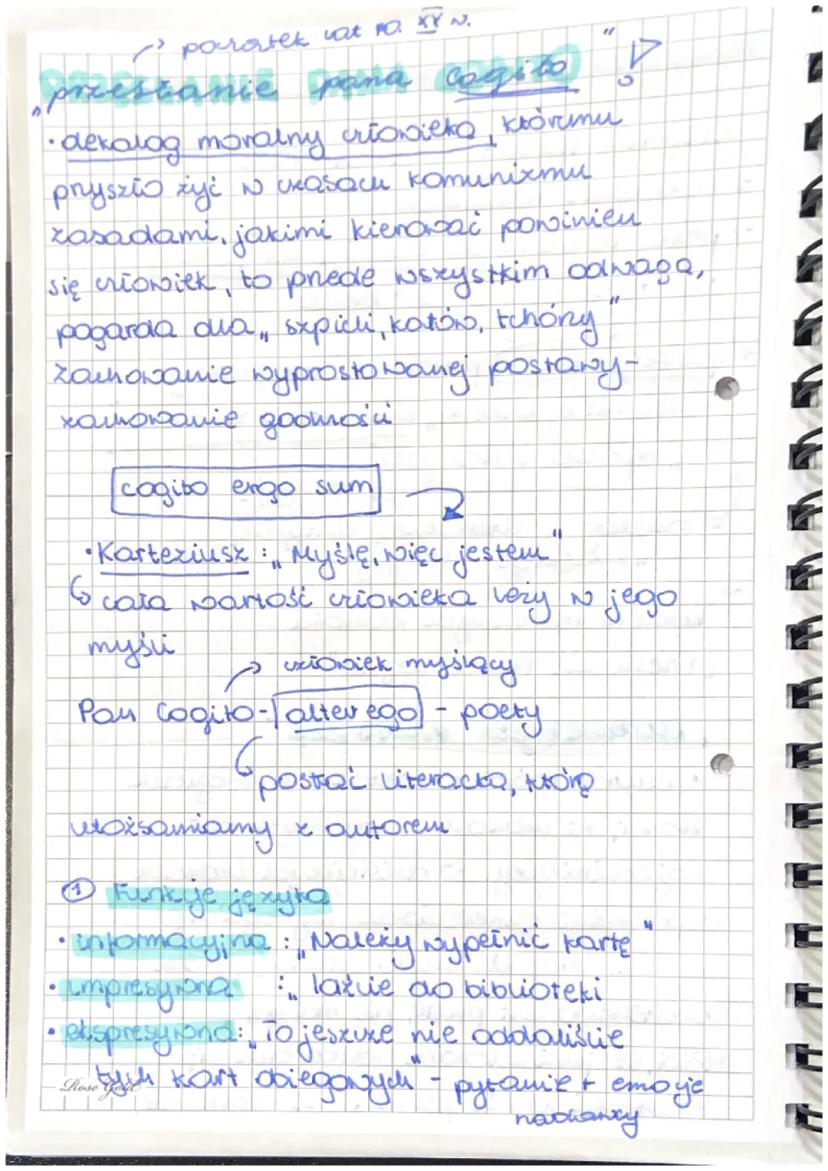 → początek lat 70. XX w.
„przesłanie pana Cogito"
• dekalog moralny człowieka, któremu
przyszło żyć w czasach komunizmu
zasadami, jakimi kierować powinien
się człowiek, to przede wszystkim odwaga,
pogarda dla „szpicli, katów, tchórzy"
zachowanie wyprostowanej postawy-
zachowanie godności
cogito ergo sum
• Kartezjusz: „Myślę, więc jestem"
↳ cała wartość człowieka leży w jego
myśli
→ człowiek myślący
Pan Cogito - alter ego - poety
↳ postać literacka, którą
utożsamiamy z autorem
① Funkcje języka
• informacyjna: „Należy wypełnić kartę"
• impresywna: „Idźcie do biblioteki
• ekspresywna: „To jeszcze nie oddaliście
tych kart obiegowych" - pytanie + emocje
nadawcy
Rose Gold